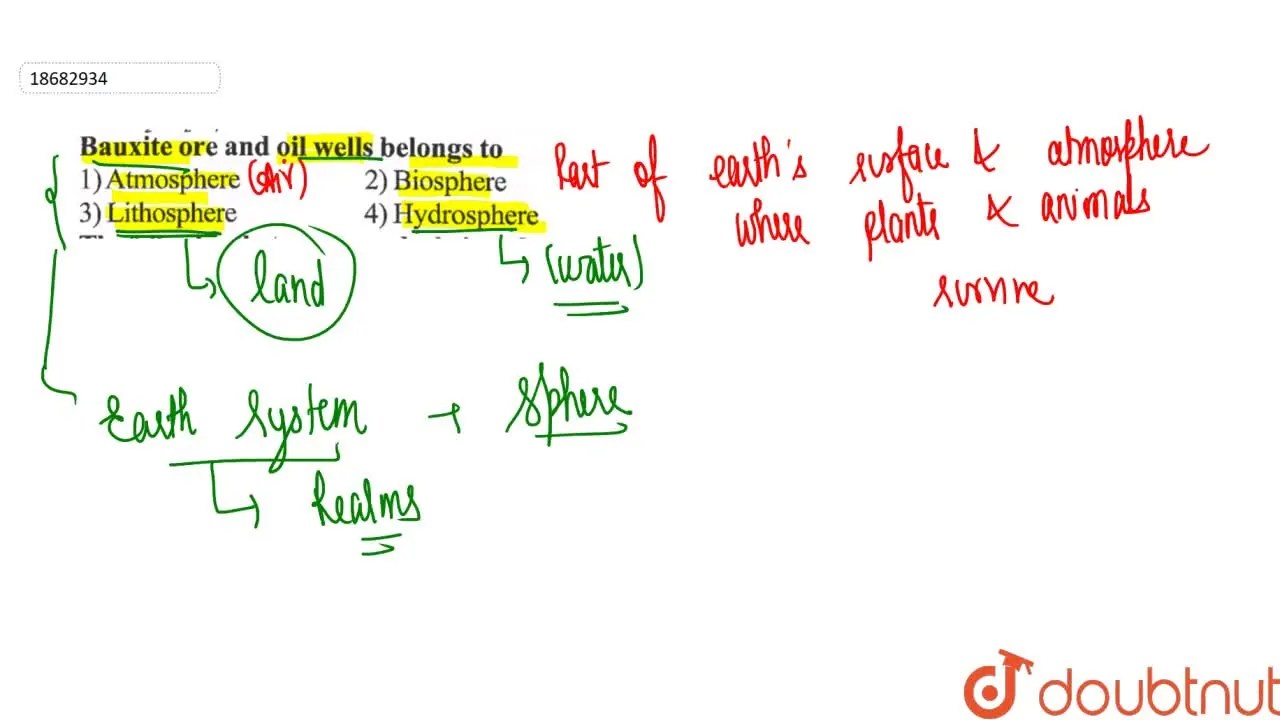 18682934
Bauxite ore and oil wells belongs to
1) Atmosphere (Air) 2) Biosphere
3) Lithosphere 4) Hydrosphere
Part of earth's surface & atmosphere
where plants & animals
survive
land
(water)
Earth System → Sphere
Realms
doubtnut